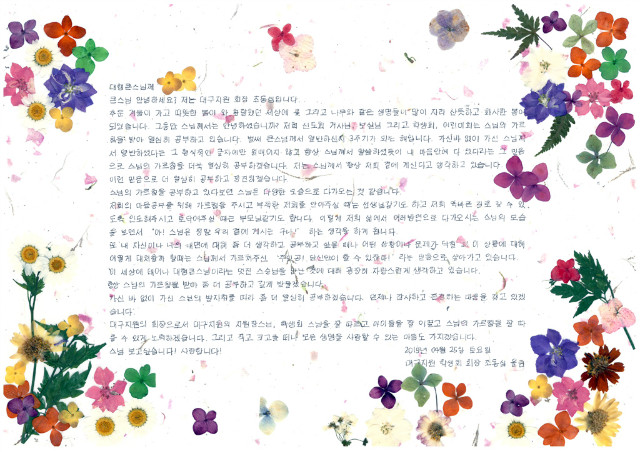 대행큰스님께
큰스님 안녕하세요! 저는 대구지원 회장 조동일입니다.
추운 겨울이 가고 따뜻한 봄이 와 온세상에 꽃 그리고 나무와 같은 생명들이 많이 자라 산뜻하고 화사한 봄이
되었습니다. 그동안 스님께서는 안녕하셨습니까? 저희 신도회 거사님, 보살님 그리고 학생회, 어린이회는 스님의 가르
침을 받아 열심히 공부하고 있습니다. 벌써 큰스님께서 열반하신지 3주기가 되는 해입니다. 가신바 없이 가신 스님께
서 열반하셨다는 그 형식적인 글자이지만
으로 스님의 가르침을 더욱 열심히 공부하겠습니다. 저는 스님께서 항상 저희 곁에 계신다고 생각하고 있습니다.
이런 믿음으로 더 열심히 공부하고 정진하겠습니다.
스님의 가르침을 공부하고 있다보면 스님은 다양한 모습으로 다가오는 것 같습니다.
저희의 마음공부를 위해 가르침을 주시고 부족한 저희를 받아주실 때는 선생님같기도 하고 저희 옆에서
도록 인도해주시고 도와주실 때는 부모님같기도 합니다. 이렇게 저희 삶에서 여러방면으로 다가오시는 스님의 모습
을 보면서 "아! 스님은 정말 우리 곁에 계시는 구나!" 하는 생각을 하게 됩니다.
또 내 자신이나 나의 내면에 대해 좀 더 생각하고 공부하고 싶을 때나 어떤 상황이나 문제가 닥쳤을 때 이 상황에 대해
어떻게 대처할까 할때는 스님께서 가르쳐주신, '주인공! 당신만이 할 수 있잖아!' 라는 말씀으로 살아가고 있습니다.
이 세상에 태어나 대행큰스님이라는 멋진 스승님을 만난 것에 대해 굉장히 자랑스럽게 생각하고 있습니다.
항상 스님의 가르침을 받아 좀 더 공부하고 깊게 받들겠습니다.
가신 바 없이 가신 스님의 발자취를 따라 좀 더 열심히 공부하겠습니다. 언제나 감사하고 존경하는 마음을 하고 있겠
습니다.
대구지원의 회장으로서 대구지원의 지원장스님, 학생회 스님을 잘 따르고 아이들을 잘 이끌고 스님의 가르침을 잘 따
를 수 있게 노력하겠습니다. 그리고 작고 크고를 떠나 모든 생명을 사랑할 수 있는 마음도 가지겠습니다.
스님 보고싶습니다! 사랑합니다!
2015년 04월 25일 토요일
대구지원 학생회 회장 조동일 올림